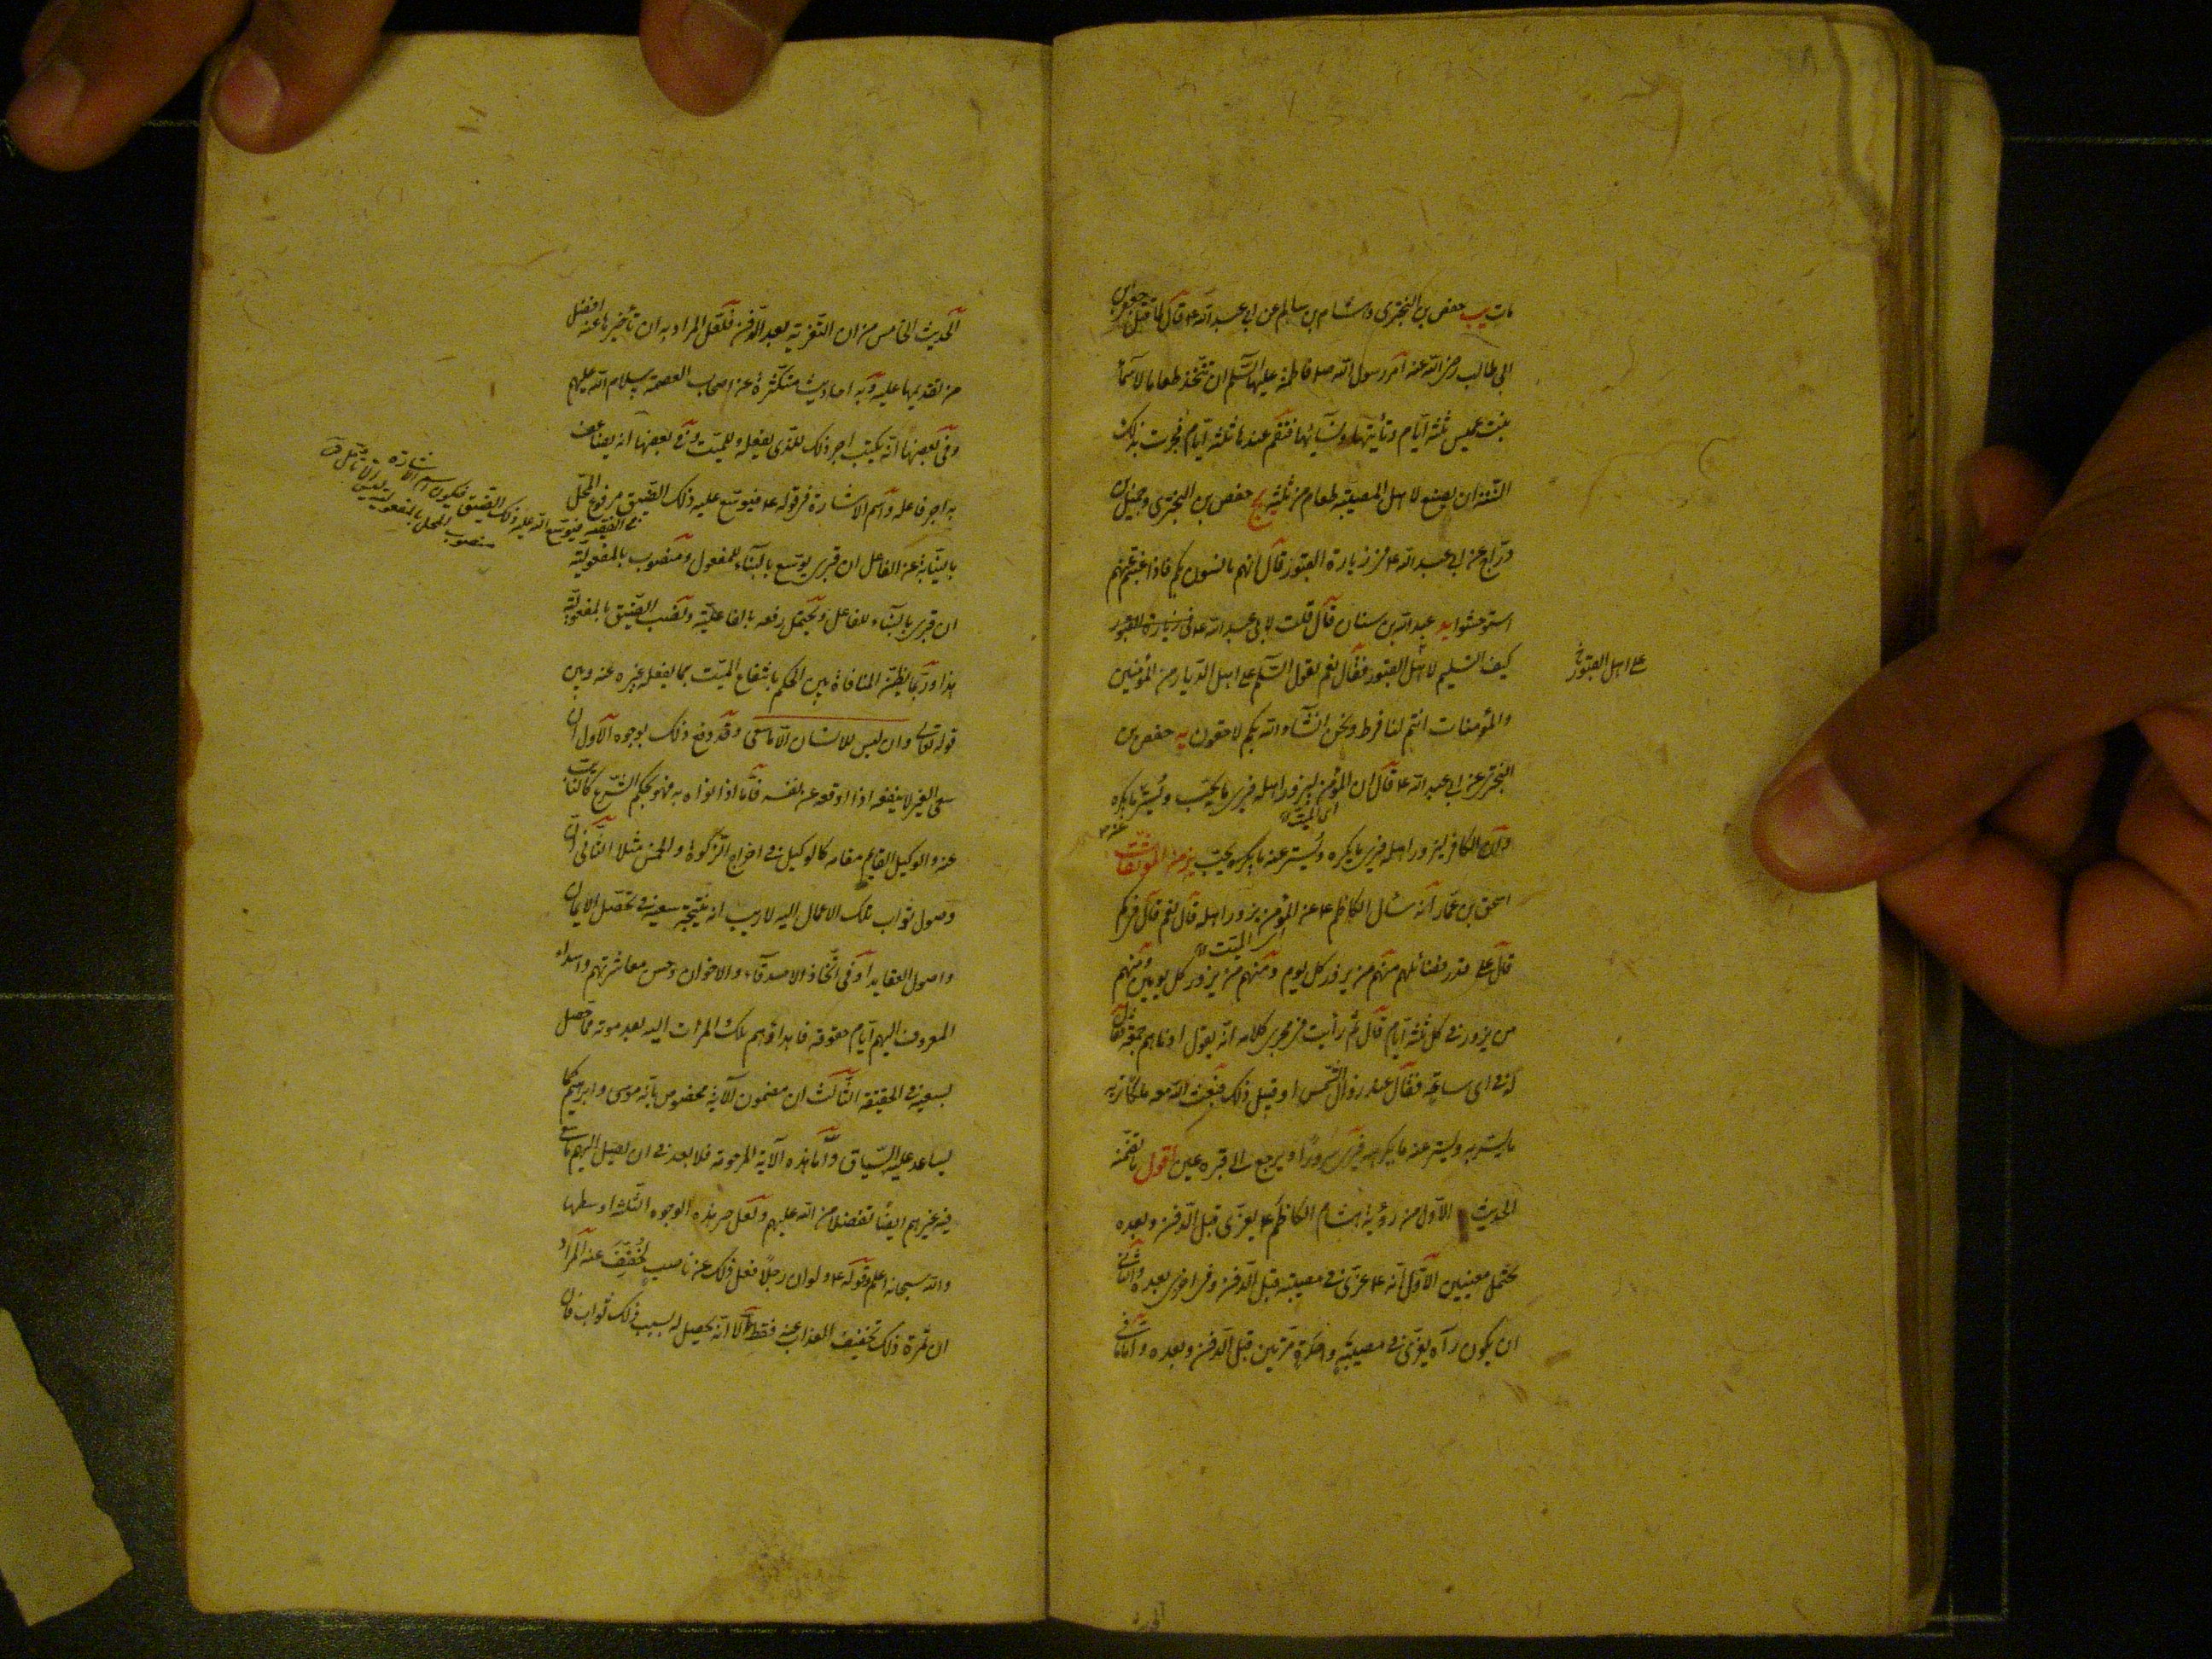 مات يب حفص بن البختري وهشام بن سالم عن ابي عبد الله ع قال لما قتل جعفر بن
ابي طالب رضي الله عنه امر رسول الله ص فاطمة عليها السلم ان تتخذ طعاما لاسماء
بنت عميس ثلثة ايام وتأتيها ونسائها فتقيم عندها ثلثة ايام فجرت بذلك
السنة ان يصنع لاهل المصيبة طعام من ثلثة يج حفص بن البختري وجميل بن
دراج عن ابي عبد الله ع في زيارة القبور قال انهم يأنسون بكم فاذا غبتم عنهم
استوحشوا يد عبد الله بن سنان قال قلت لابي عبد الله ع في زيارة القبور
كيف التسليم لاهل القبور فقال نعم تقول السلم على اهل الديار من المؤمنين
على اهل القبور خ
والمؤمنات انتم لنا فرط ونحن انشاء الله بكم لاحقون يه حفص بن
البختري عن ابي عبد الله ع قال ان المؤمن ليزور اهله فيرى ما يحب ويستر ما يكره
اي الميت
عنه
وان الكافر ليزور اهله فيرى ما يكره ويستر عنه ما يحب يو من الموثقات
اسحق بن عمار انه سئل الكاظم ع عن المؤمن يزور اهله قال نعم قال في كم
اي الميت
قال على قدر فضائلهم منهم من يزور كل يوم ومنهم من يزور كل يومين ومنهم
من يزور في كل ثلثة ايام قال ثم رأيت في مجرى كلامه انه يقول ادناهم جمعة فقال
له في اي ساعة فقال عند زوال الشمس او قبيل ذلك فيبعث الله معه ملكا يريه
ما يسر به ويستر عنه ما يكرهه فيرى سرورا ويرجع الى قرة عين اقول ما تضمنه
الحديث الاول من رؤية هشام الكاظم ع يعزي قبل الدفن وبعده
يحتمل معنيين الاول انه ع عزى في مصيبة قبل الدفن وفي اخرى بعده والثاني
ان يكون رآه يعزي في مصيبة واحدة مرتين قبل الدفن وبعده واما ما في
الحديث الخامس من ان التعزية بعد الدفن فلعل المراد به ان تأخيرها عنه افضل
من تقديمها عليه وبه احاديث متكثرة عن اصحاب العصمة سلام الله عليهم
وفي بعضها انه يكتب اجر ذلك للذي يفعله وللميت وفي بعضها انه يضاعف
به اجر فاعله واسم الاشارة في قوله ع فيوسع عليه ذلك الضيق مرفوع المحل
في الفقيه فيوسع الله عليه ذلك الضيق فيكون اسم الاشارة
منصوب المحل بالمفعولية ليس الا
بالنيابة عن الفاعل ان قرئ يوسع بالبناء للمفعول ومنصوب بالمفعولية
ان قرئ بالبناء للفاعل ويحتمل رفعه بالفاعلية ونصب الضيق بالمفعولية
هذا وربما يظن المنافاة بين الحكم بانتفاع الميت بما يفعله غيره عنه وبين
قوله تعالى وان ليس للانسان الا ما سعى وقد دفع ذلك بوجوه الاول ان
سعي الغير لا ينفعه اذا اوقعه عن نفسه فاما اذا نواه به فهو بحكم الشرع كالنايب
عنه والوكيل القايم مقامه كالوكيل في اخراج الزكوة والخمس مثلا الثاني ان
وصول ثواب تلك الاعمال اليه لا ريب انه نتيجة سعيه في تحصيل الايمان
واصول العقايد او في اتخاذ الاصدقاء والاخوان وحسن معاشرتهم واسداء
المعروف اليهم ايام حقوقه فاهداؤهم تلك المبرات اليه بعد موته مما حصل
بسعيه في الحقيقة الثالث ان مضمون الآية مخصوص بامة موسى وابرهيم كما
يساعد عليه السياق واما هذه الآمة المرحومة فلا بعد في ان يصل اليهم ما سعى
فيه غيرهم ايضا تفضلا من الله عليهم ولعل خير هذه الوجوه الثلثة اوسطها
والله سبحانه اعلم وقوله ع ولو ان رجلا فعل ذلك عن ناصب لخفف عنه المراد
ان ثمرة ذلك تخفيف العذاب عنه فقط الا انه يحصل له بسبب ذلك ثواب فان